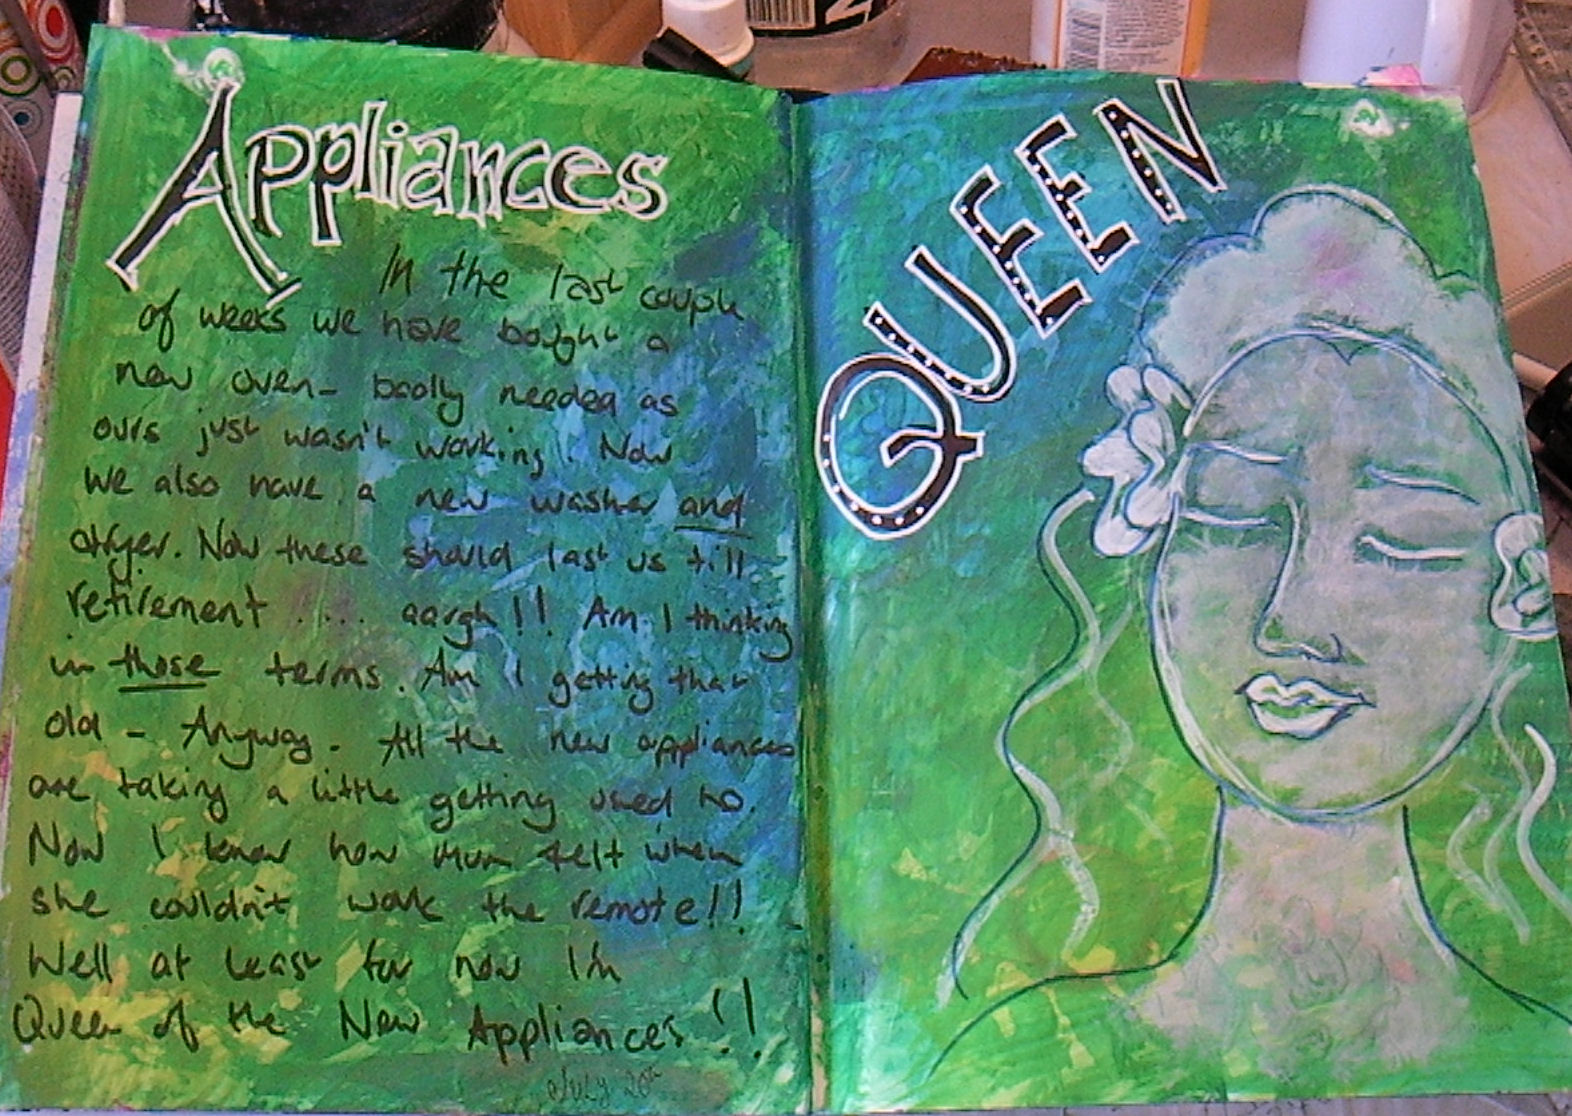 Appliances
In the last couple
of weeks we have bought a
new oven - badly needed as
ours just wasn't working. Now
we also have a new washer and
dryer. Now these should last us till
retirement .... aargh!! Am I thinking
in those terms. Am I getting that
old - Anyway. All the new appliances
are taking a little getting used to.
Now I know how Mum felt when
she couldn't work the remote!!
Well at least for now I'm
Queen of the New Appliances!!
July 20th
QUEEN